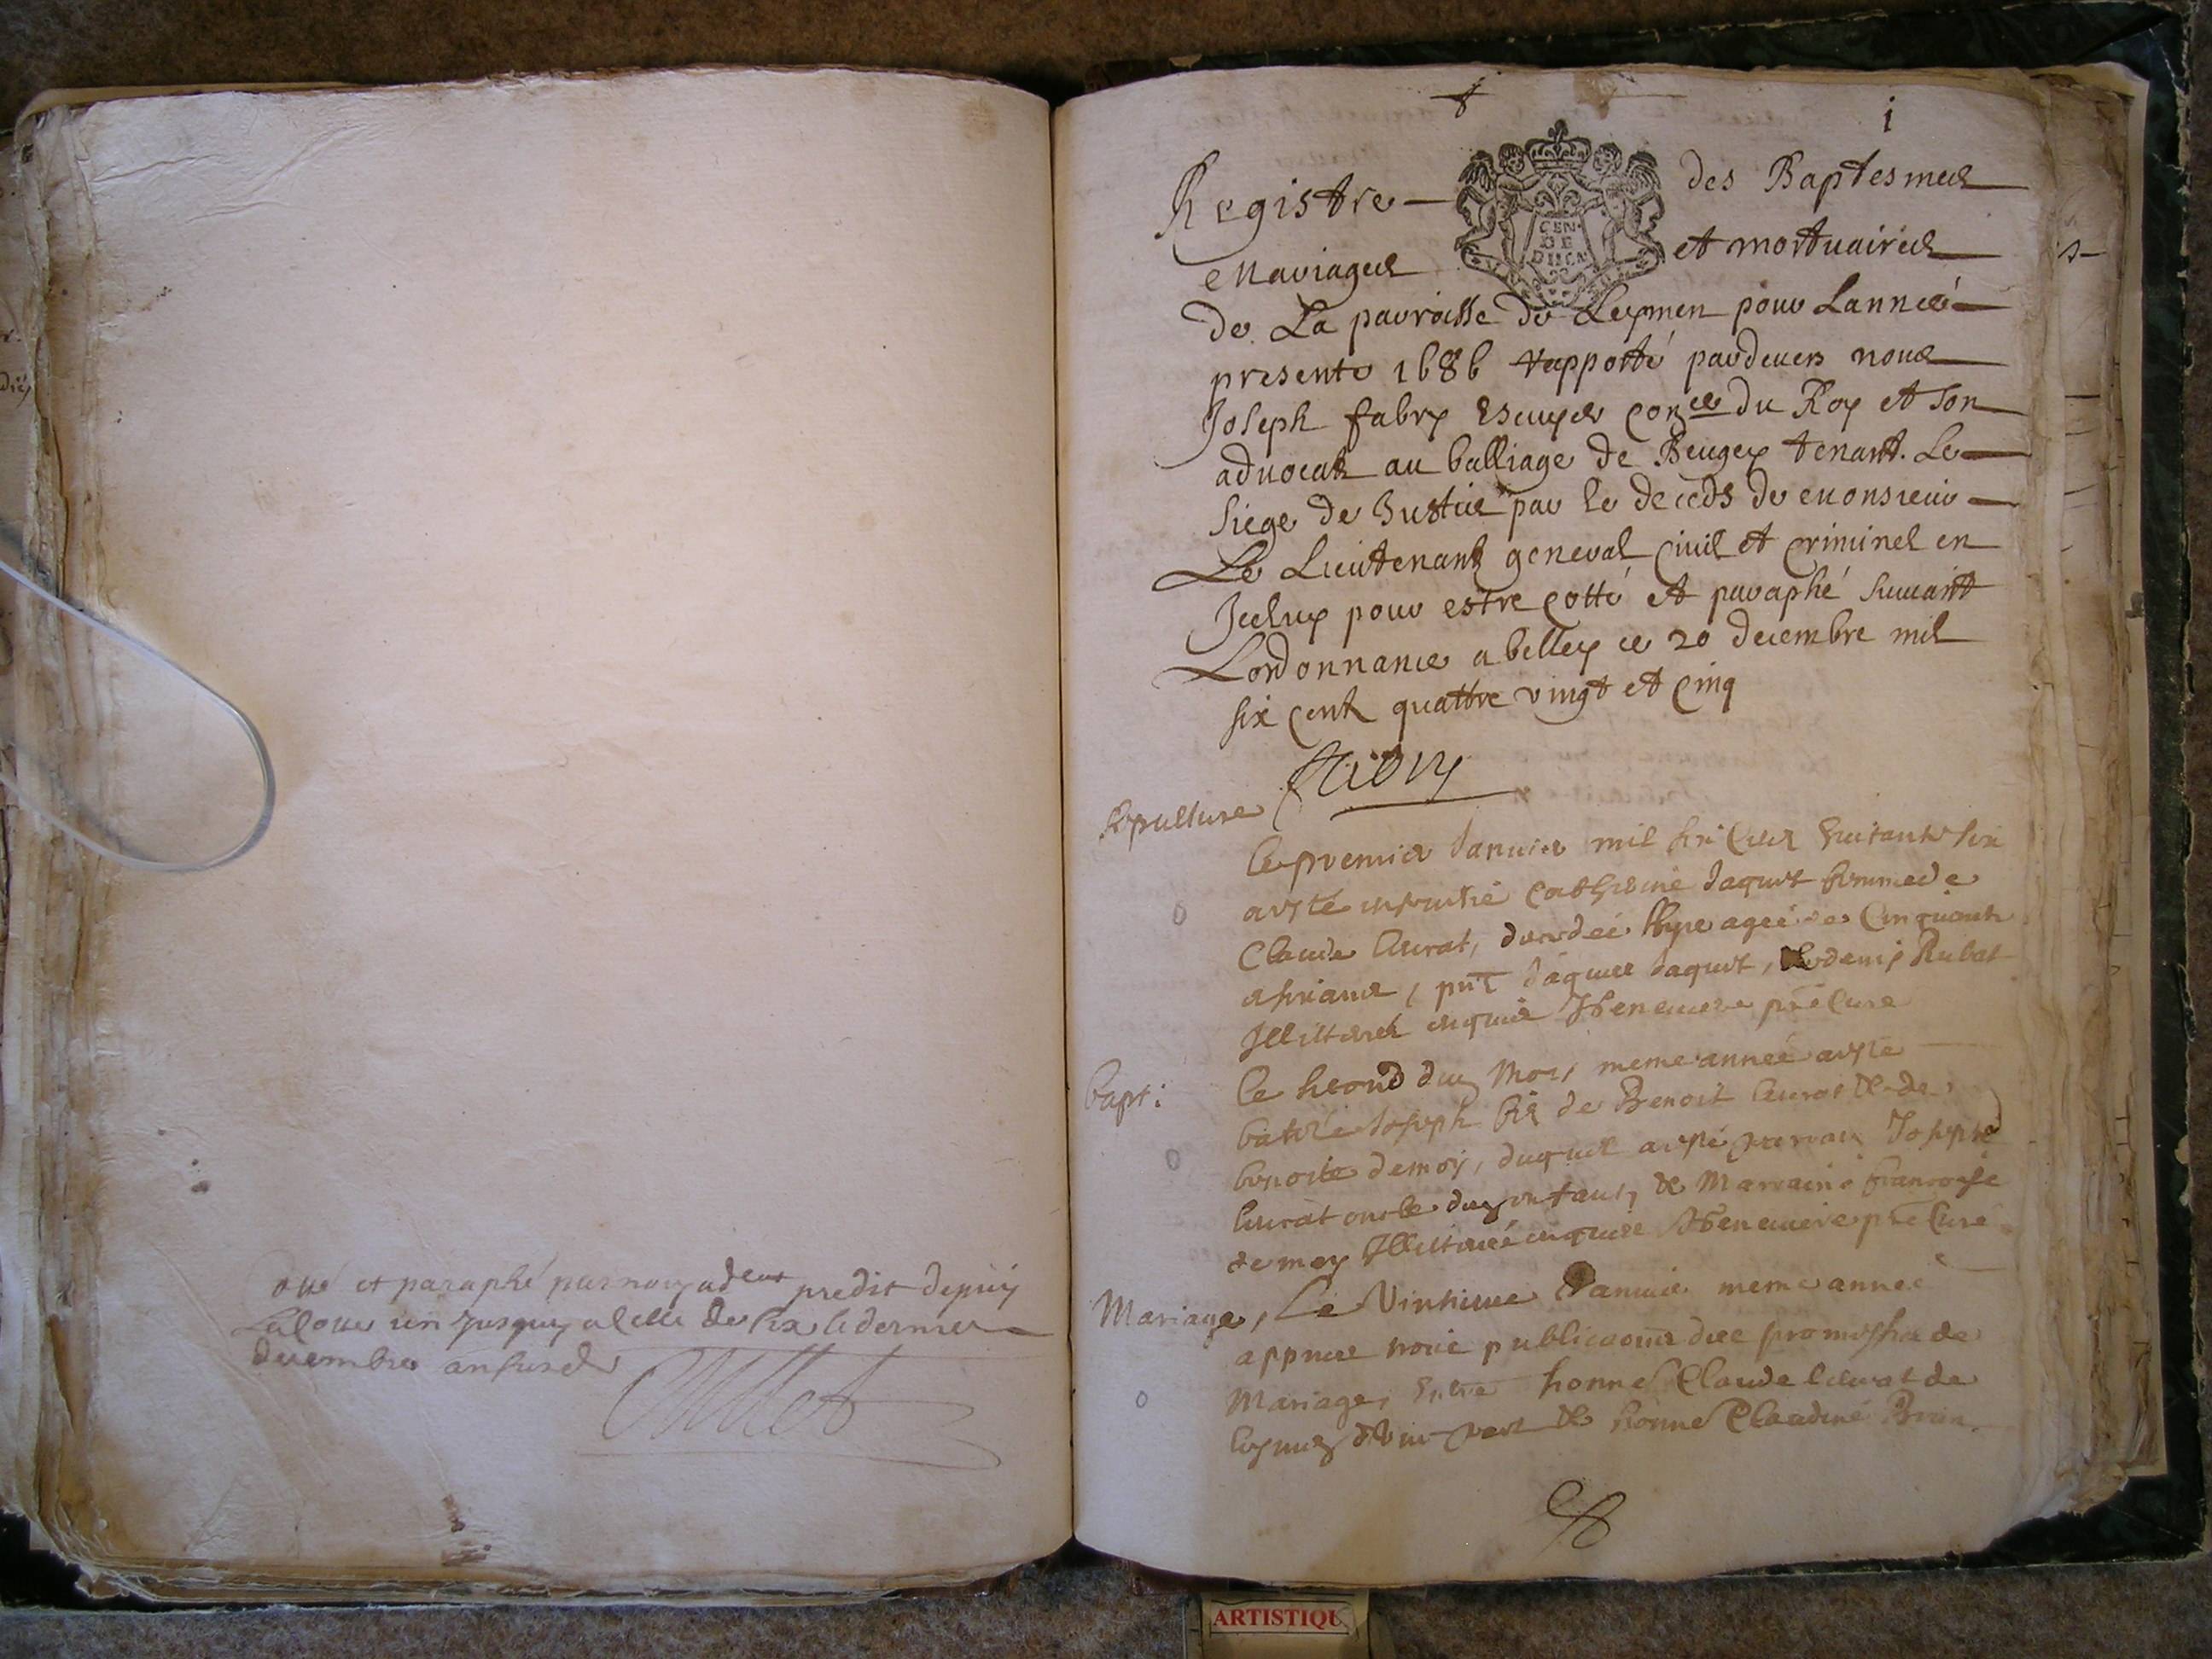 Cotté et paraphé par nous adcat predit depuis
La Cotte un jusques a celle de six le dernier
decembre an susdt
1
Registre des Baptesmes
Mariages et mortuaires
CEN.
DE
de La parroisse de Leymen pour Lannée
presente 1686 rapporté pardevers nous
Joseph fabry Escuyer coner du Roy et son
advocat au balliage de Beugey tenant Le
siege de Justice par le deceds de monsieur
Le Lieutenant general civil et criminel en
Iceluy pour estre cotté et paraphé suivant
Lordonnance a belley ce 20 decembre mil
six cent quattre vingt et cinq
fabry
Sepulture
le premier Janvier mil six cens huitante six
a esté enterrée Catherine Jaquet femme de
Claude decedée agée de Cinquante
ans, pnt Jaques Jaquet, denis Rubat
Illitteres enquis pre Cure
bapt:
le second dud Mois meme année a esté
batisé Joseph fils de Benoit & de
benoite demoy, duquel a esté parrain Joseph
oncle dud enfant, & Marraine francoise
demoy Illitterés enquis pre Curé
Mariage, Le Vintieme Janvier meme année
appres trois publications des promesses de
Mariage, Entre honne Claude de
& honne Claudine
ARTISTIQU